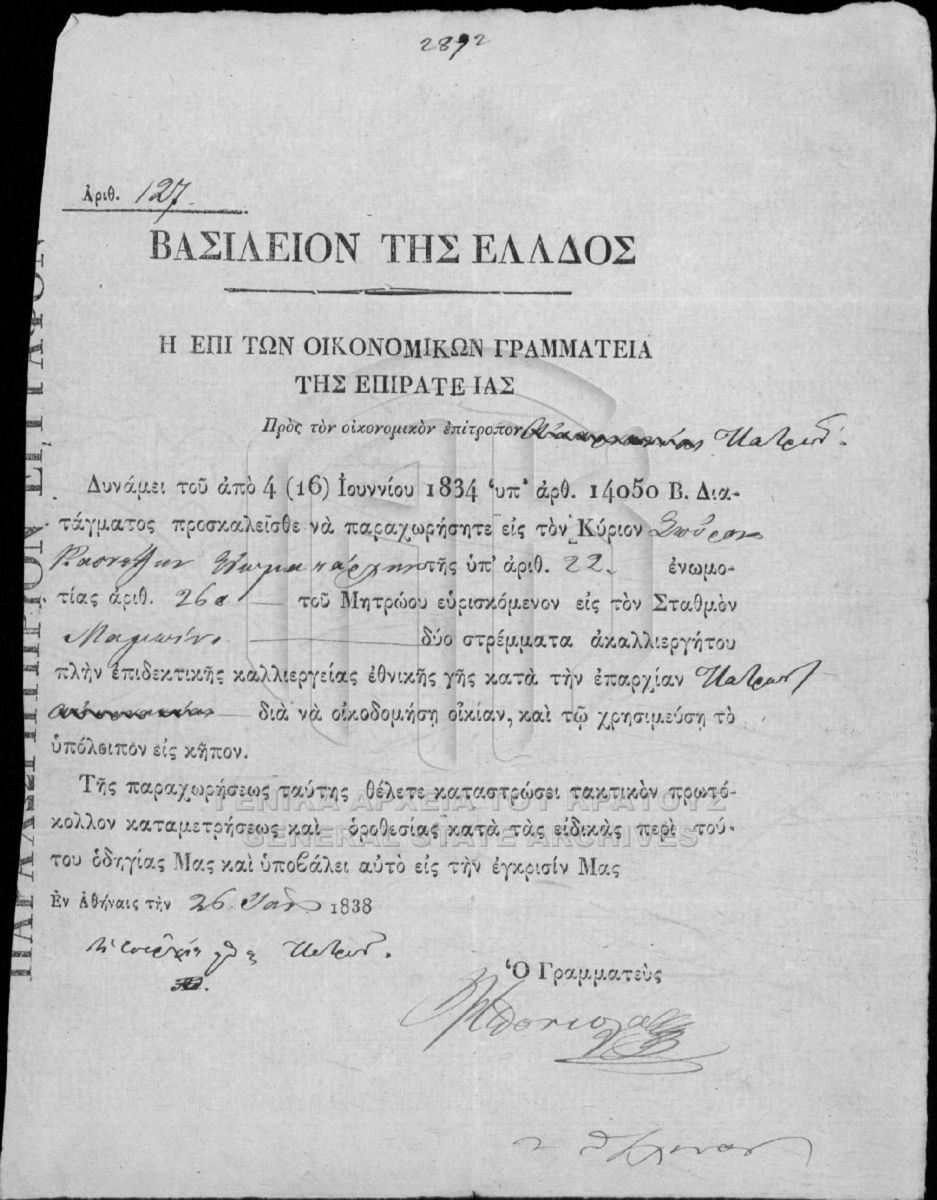 2892
Ἀριθ. 127
ΒΑΣΙΛΕΙΟΝ ΤΗΣ ΕΛΛΑΔΟΣ
Η ΕΠΙ ΤΩΝ ΟΙΚΟΝΟΜΙΚΩΝ ΓΡΑΜΜΑΤΕΙΑ
ΤΗΣ ΕΠΙΡΑΤΕΙΑΣ
Πρὸς τὸν οἰκονομικὸν ἐπίτροπον Πατρῶν.
Δυνάμει τοῦ ἀπὸ 4 (16) Ιουννίου 1834 ὑπ' ἀρθ. 14050 Β. Δια-
τάγματος προσκαλεῖσθε νὰ παραχωρήσητε εἰς τὸν Κύριον Σπῦρον
τῆς ὑπ' ἀριθ. 22. ἐνωμο-
τίας ἀριθ. 260 τοῦ Μητρώου εὑρισκόμενον εἰς τὸν Σταθμὸν
δύο στρέμματα ἀκαλλιεργήτου
πλὴν ἐπιδεκτικῆς καλλιεργείας ἐθνικῆς γῆς κατὰ τὴν ἐπαρχίαν Πατρῶν
διὰ νὰ οἰκοδομήση οἰκίαν, καὶ τῷ χρησιμεύση τὸ
ὑπόλοιπον εἰς κῆπον.
Τῆς παραχωρήσεως ταύτης θέλετε καταστρώσει τακτικὸν πρωτό-
κολλον καταμετρήσεως καὶ ὁροθεσίας κατὰ τὰς εἰδικὰς περὶ τού-
του ὁδηγίας Μας καὶ ὑποβάλει αὐτὸ εἰς τὴν ἐγκρισίν Μας
Ἐν Ἀθήναις τὴν 26 1838
Ὁ Γραμματεὺς
ΓΕΝΙΚΑ ΑΡΧΕΙΑ ΤΟΥ ΚΡΑΤΟΥΣ
GENERAL STATE ARCHIVES